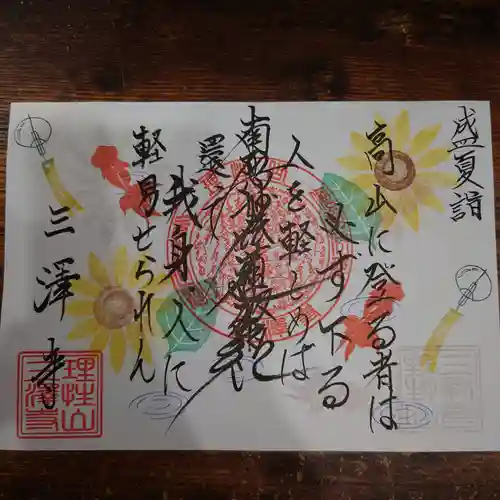 盛夏詣
高山に登る者は
必ず下る
人を軽しめば
南無妙法蓮華経
還て
我身人に
軽易せられん
三澤寺
理性山
三澤寺